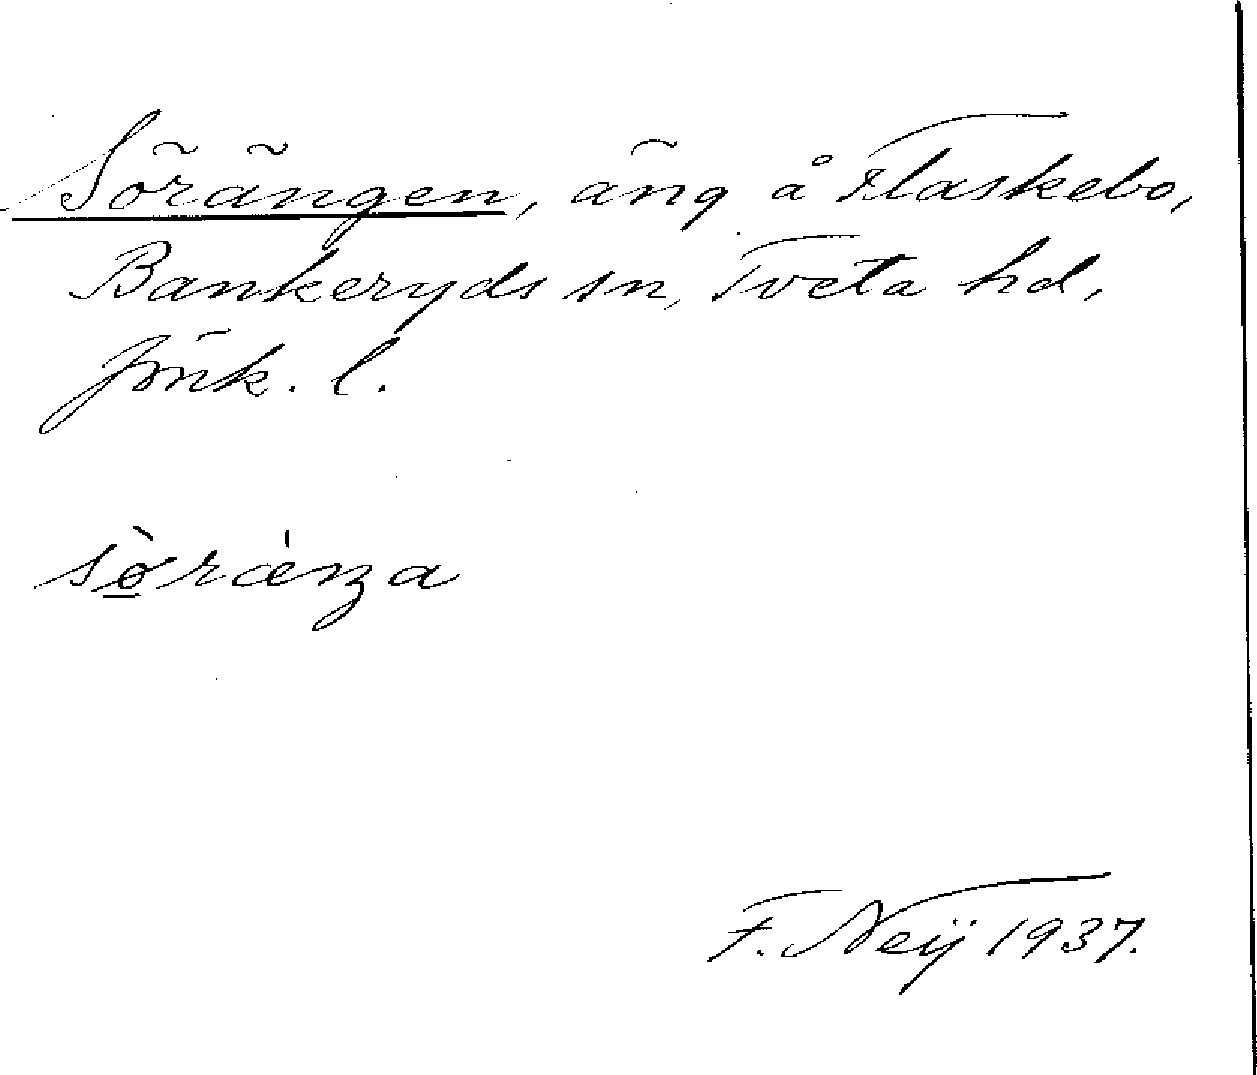 Sörängen, äng å Flaskebo,
Bankeryds sn, Tveta hd,
Jönk. l.
sò̠ræ̀nʒa
F. Neij 1937.